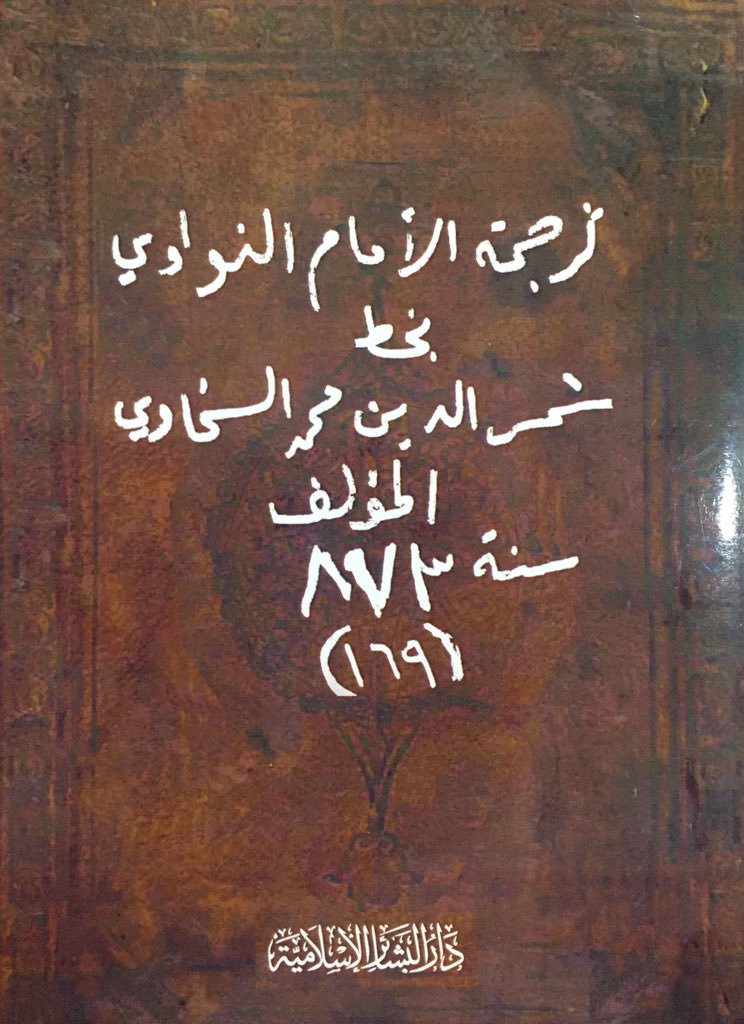 ترجمة الأمام النواوي
بخط
شمس الدين محمد السخاوي
المؤلف
سنة ٨٧٣
(١٦٩)
دار البشائر الإسلامية